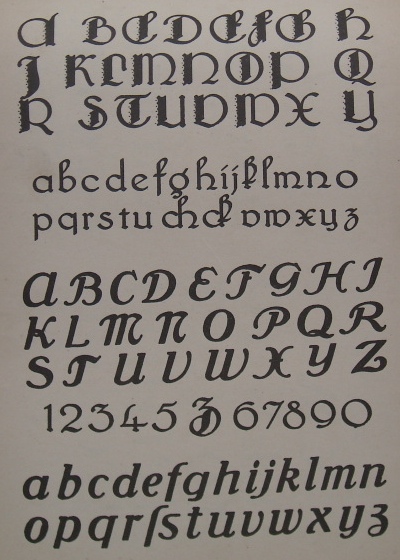 A B C D E F G H
J K L M N O P Q
R S T U V W X Y
abcdefghijklmno
pqrstu ch ck vwxyz
ABCD EFGHI
KLMNOPQR
ST UVWXYZ
12345 Z 67890
abcdefghijklmn
opqrſstuvwxyz